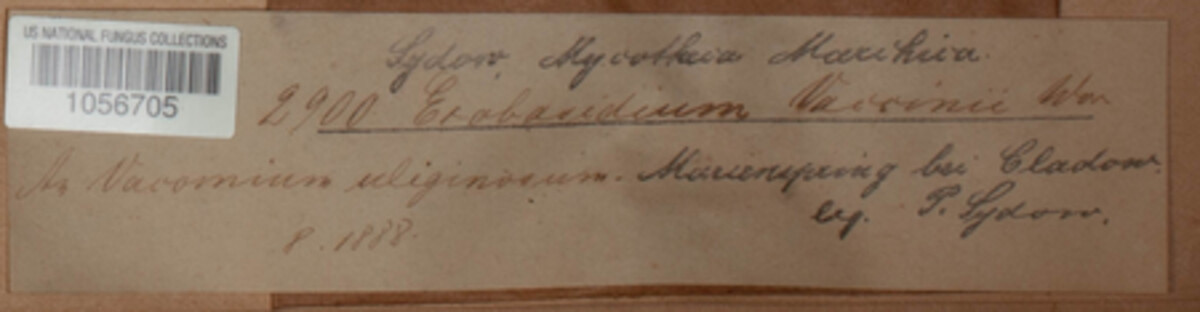 US NATIONAL FUNGUS COLLECTIONS
1056705
Sydow, Mycotheca Marchica.
2900 Exobasidium Vaccinii Wor
An Vaccinium uliginosum. Marienspring bei Cladow.
leg. P. Sydow.
8. 1888.